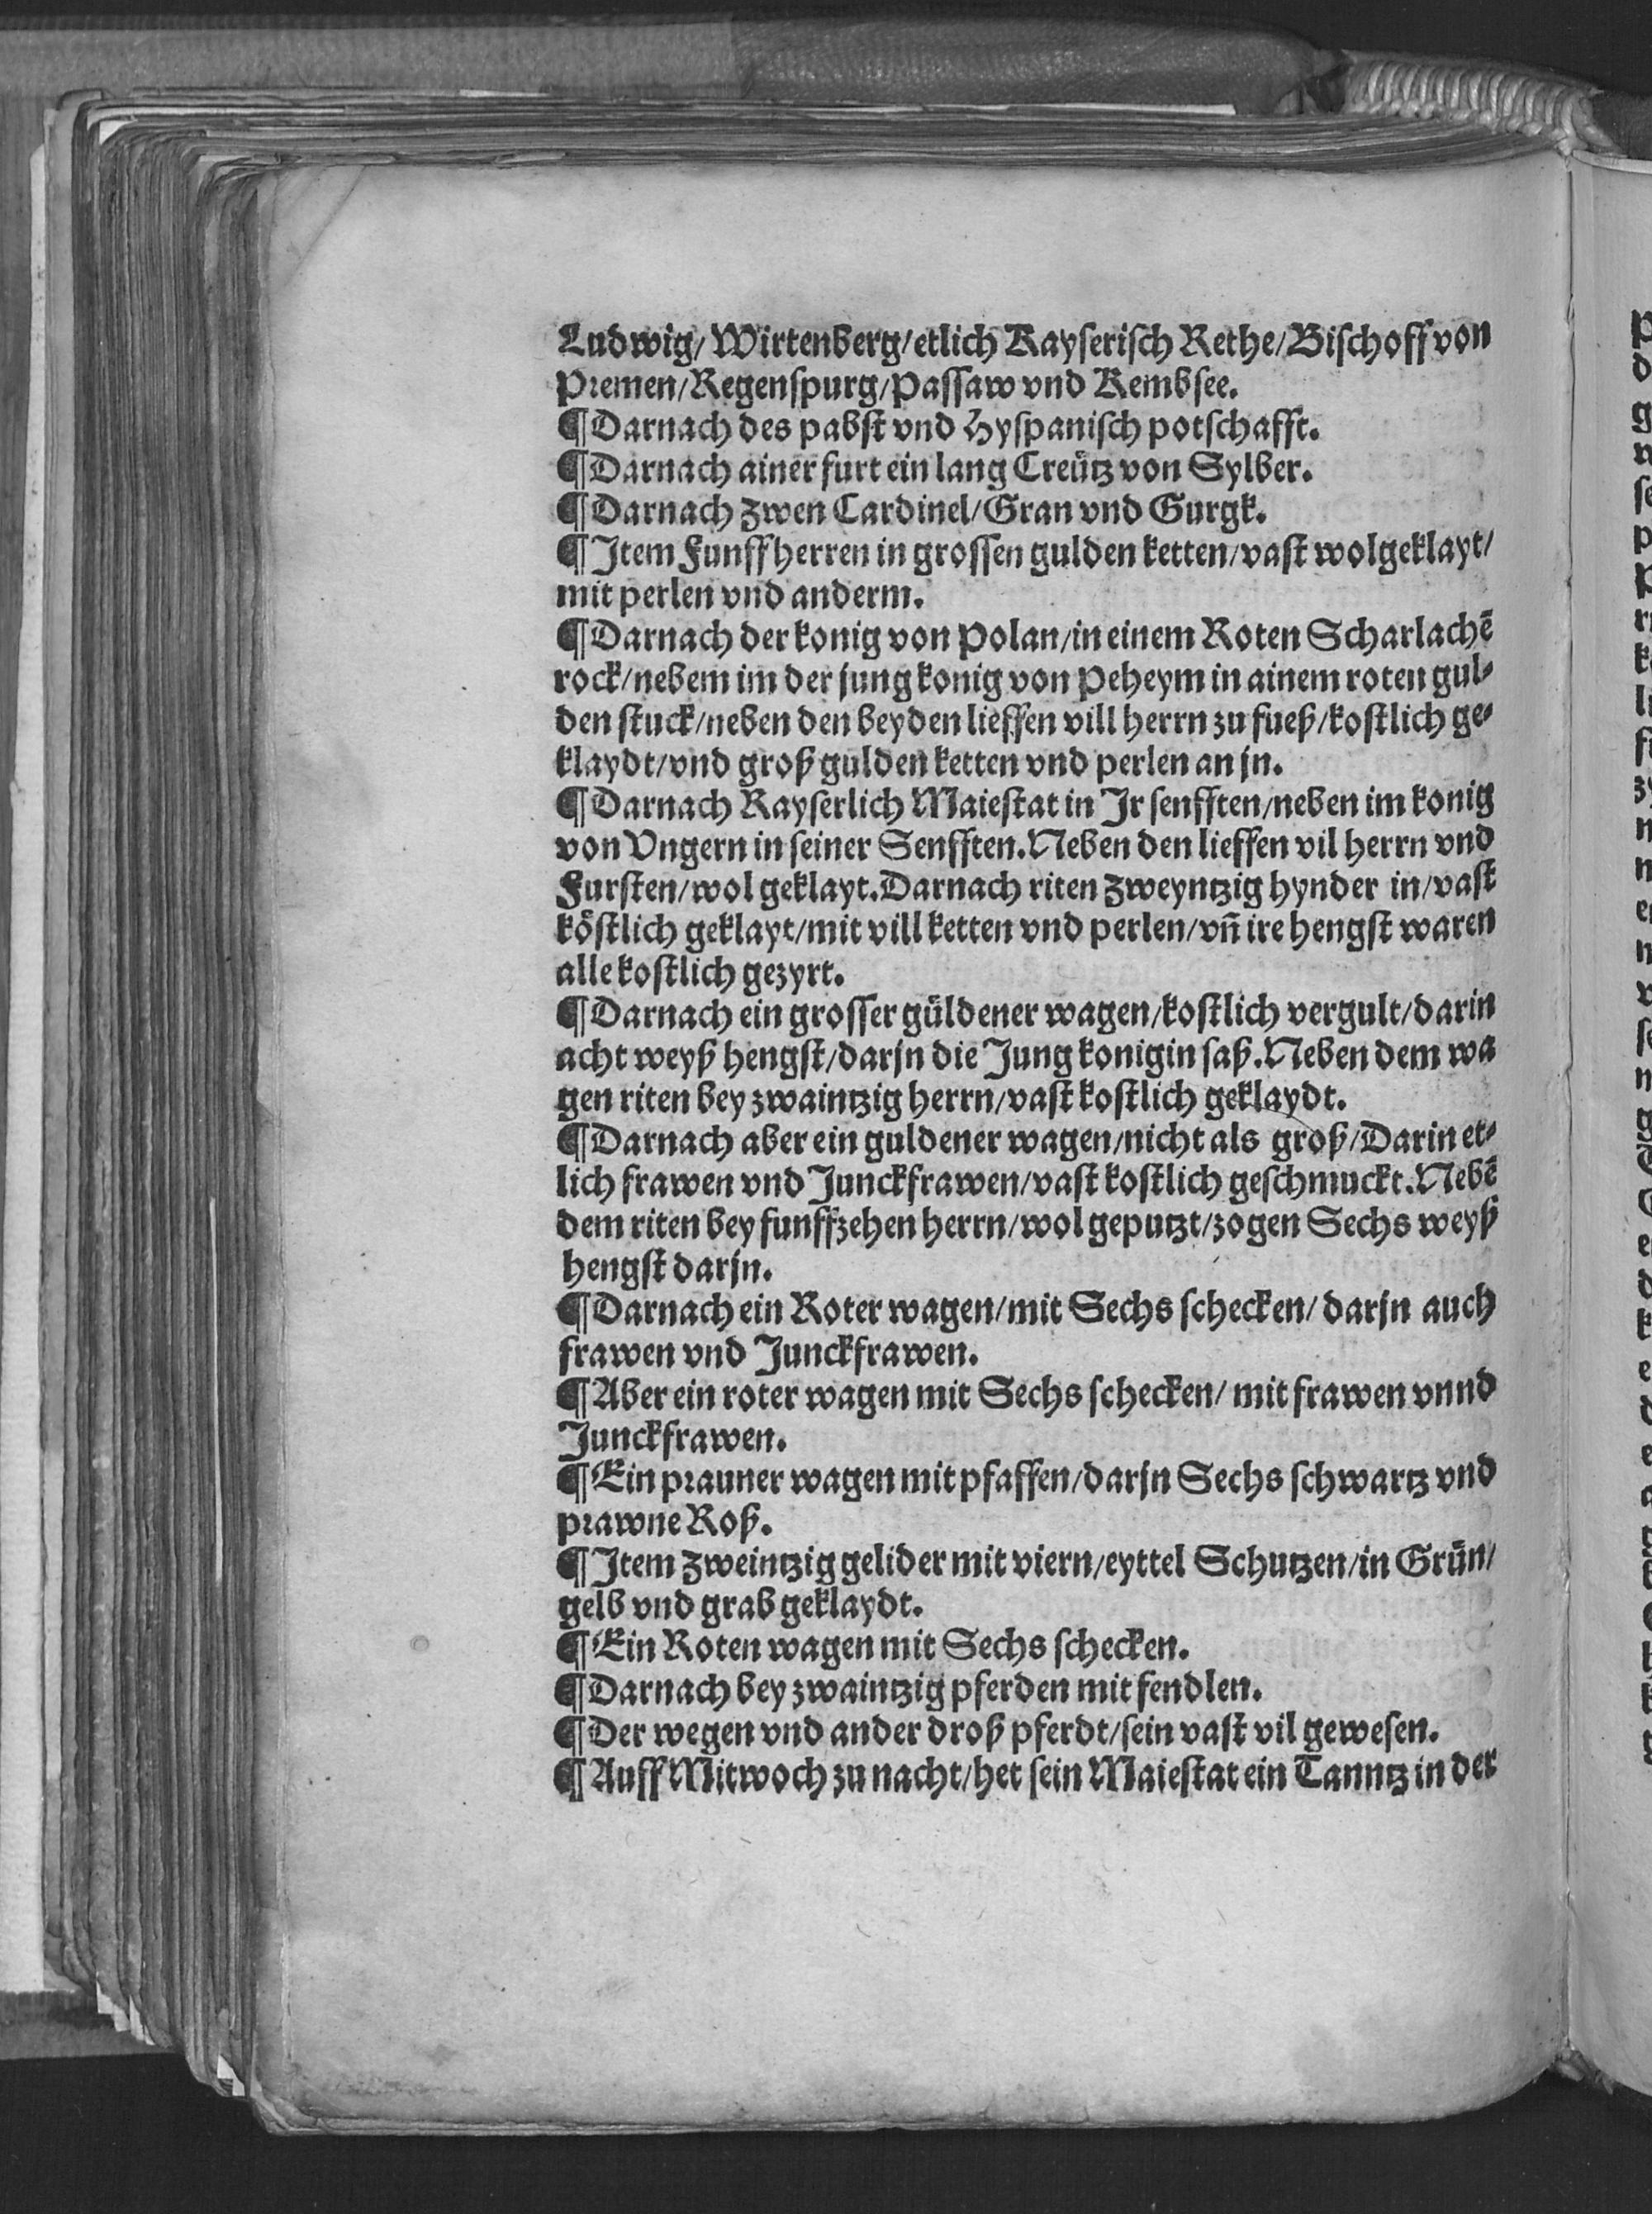 Ludwig/ Wirtenberg/etlich Kayſeriſch Rethe/Biſchoff von
Premen/Regenſpurg/Paſſaw vnd Kembſee.
¶ Darnach des pabſt vnd Hyſpaniſch potſchafft.
¶ Darnach ainer furt ein lang Creütz von Sylber.
¶ Darnach Zwen Cardinel/Gran vnd Gurgk.
¶ Item Funff herren in groſſen gulden ketten/vaſt wolgeklayt/
mit perlen vnd anderm.
¶ Darnach der konig von Polan/in einem Roten Scharlachē
rock/nebem im der jung konig von Peheym in ainem roten gul⸗
den ſtuck/neben den beyden lieffen vill herrn zu fueß/koſtlich ge⸗
klaydt/vnd groß gulden ketten vnd perlen an jn.
¶ Darnach Kayſerlich Maieſtat in Ir ſenfften/neben im konig
von Vngern in ſeiner Senfften. Neben den lieffen vil herrn vnd
Furſten/wol geklayt. Darnach riten Zweyntzig hynder in/vaſt
köſtlich geklayt/mit vill ketten vnd perlen/vn̄ ire hengſt waren
alle koſtlich gezyrt.
¶ Darnach ein groſſer güldener wagen/koſtlich vergult/darin
acht weyß hengſt/darjn die Jung konigin ſaß. Neben dem wa
gen riten bey zwaintzig herrn/vaſt koſtlich geklaydt.
¶ Darnach aber ein guldener wagen/nicht als groß/Darin et⸗
lich frawen vnd Junckfrawen/vaſt koſtlich geſchmuckt. Nebē
dem riten bey funffzehen herrn/wol geputzt/zogen Sechs weyß
hengſt darjn.
¶ Darnach ein Roter wagen/mit Sechs ſchecken/ darjn auch
frawen vnd Junckfrawen.
¶ Aber ein roter wagen mit Sechs ſchecken/ mit frawen vnnd
Junckfrawen.
¶ Ein prauner wagen mit pfaffen/darjn Sechs ſchwartz vnd
prawne Roß.
¶ Item Zweintzig gelider mit viern/eyttel Schutzen/in Grün/
gelb vnd grab geklaydt.
¶ Ein Roten wagen mit Sechs ſchecken.
¶ Darnach bey zwaintzig pferden mit fendlen.
¶ Der wegen vnd ander droß pferdt/ſein vaſt vil geweſen.
¶ Auff Mitwoch zu nacht/het ſein Maieſtat ein Tanntz in der